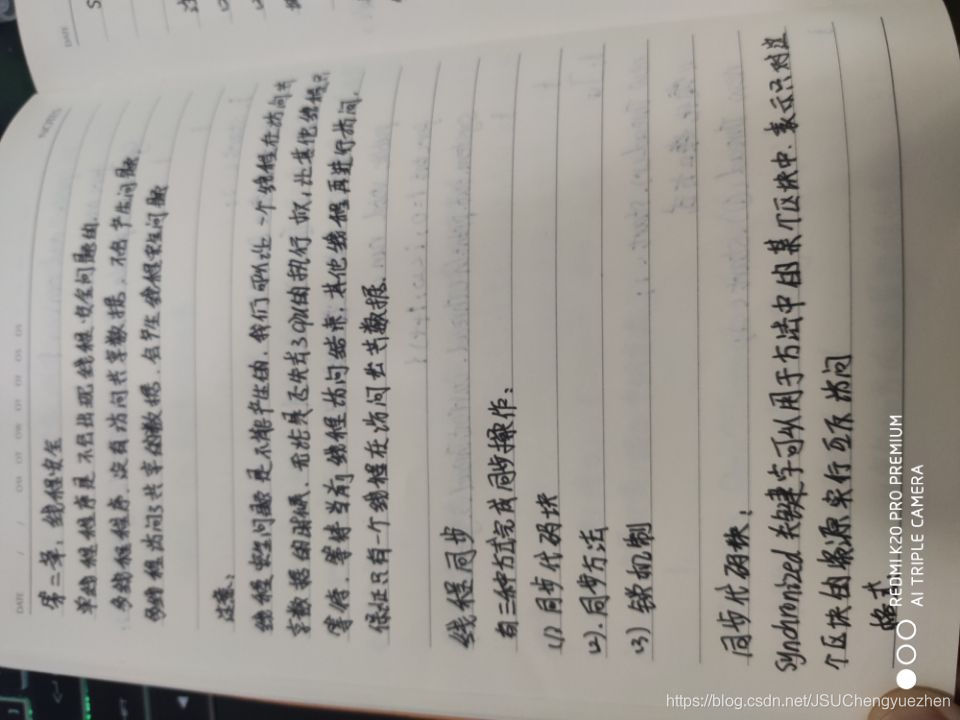 DATE
第二章：线程安全
单线程程序是不会出现线程安全问题的
多线程程序，没有访问共享数据，不会产生问题
多线程访问了共享的数据，会产生线程安全问题
注意：
线程安全问题是不能产生的，我们可以让一个线程在访问共
享数据的时候，无论是否失去了cpu的执行权；让其他线程只
等待，等待当前线程访问结束，其他线程再进行访问．
保证只有一个线程在访问共享数据．
线程同步
有三种方式完成同步操作：
(1) 同步代码块
(2).同步方法
(3) 锁机制
同步代码块：
synchronized关键字可以用于方法中的某个区块中．表示只对这
个区块的资源实行互斥访问
格式
REDMI K20 PRO PREMIUM
AI TRIPLE CAMERA
https://blog.csdn.net/JSUChengyuezhen